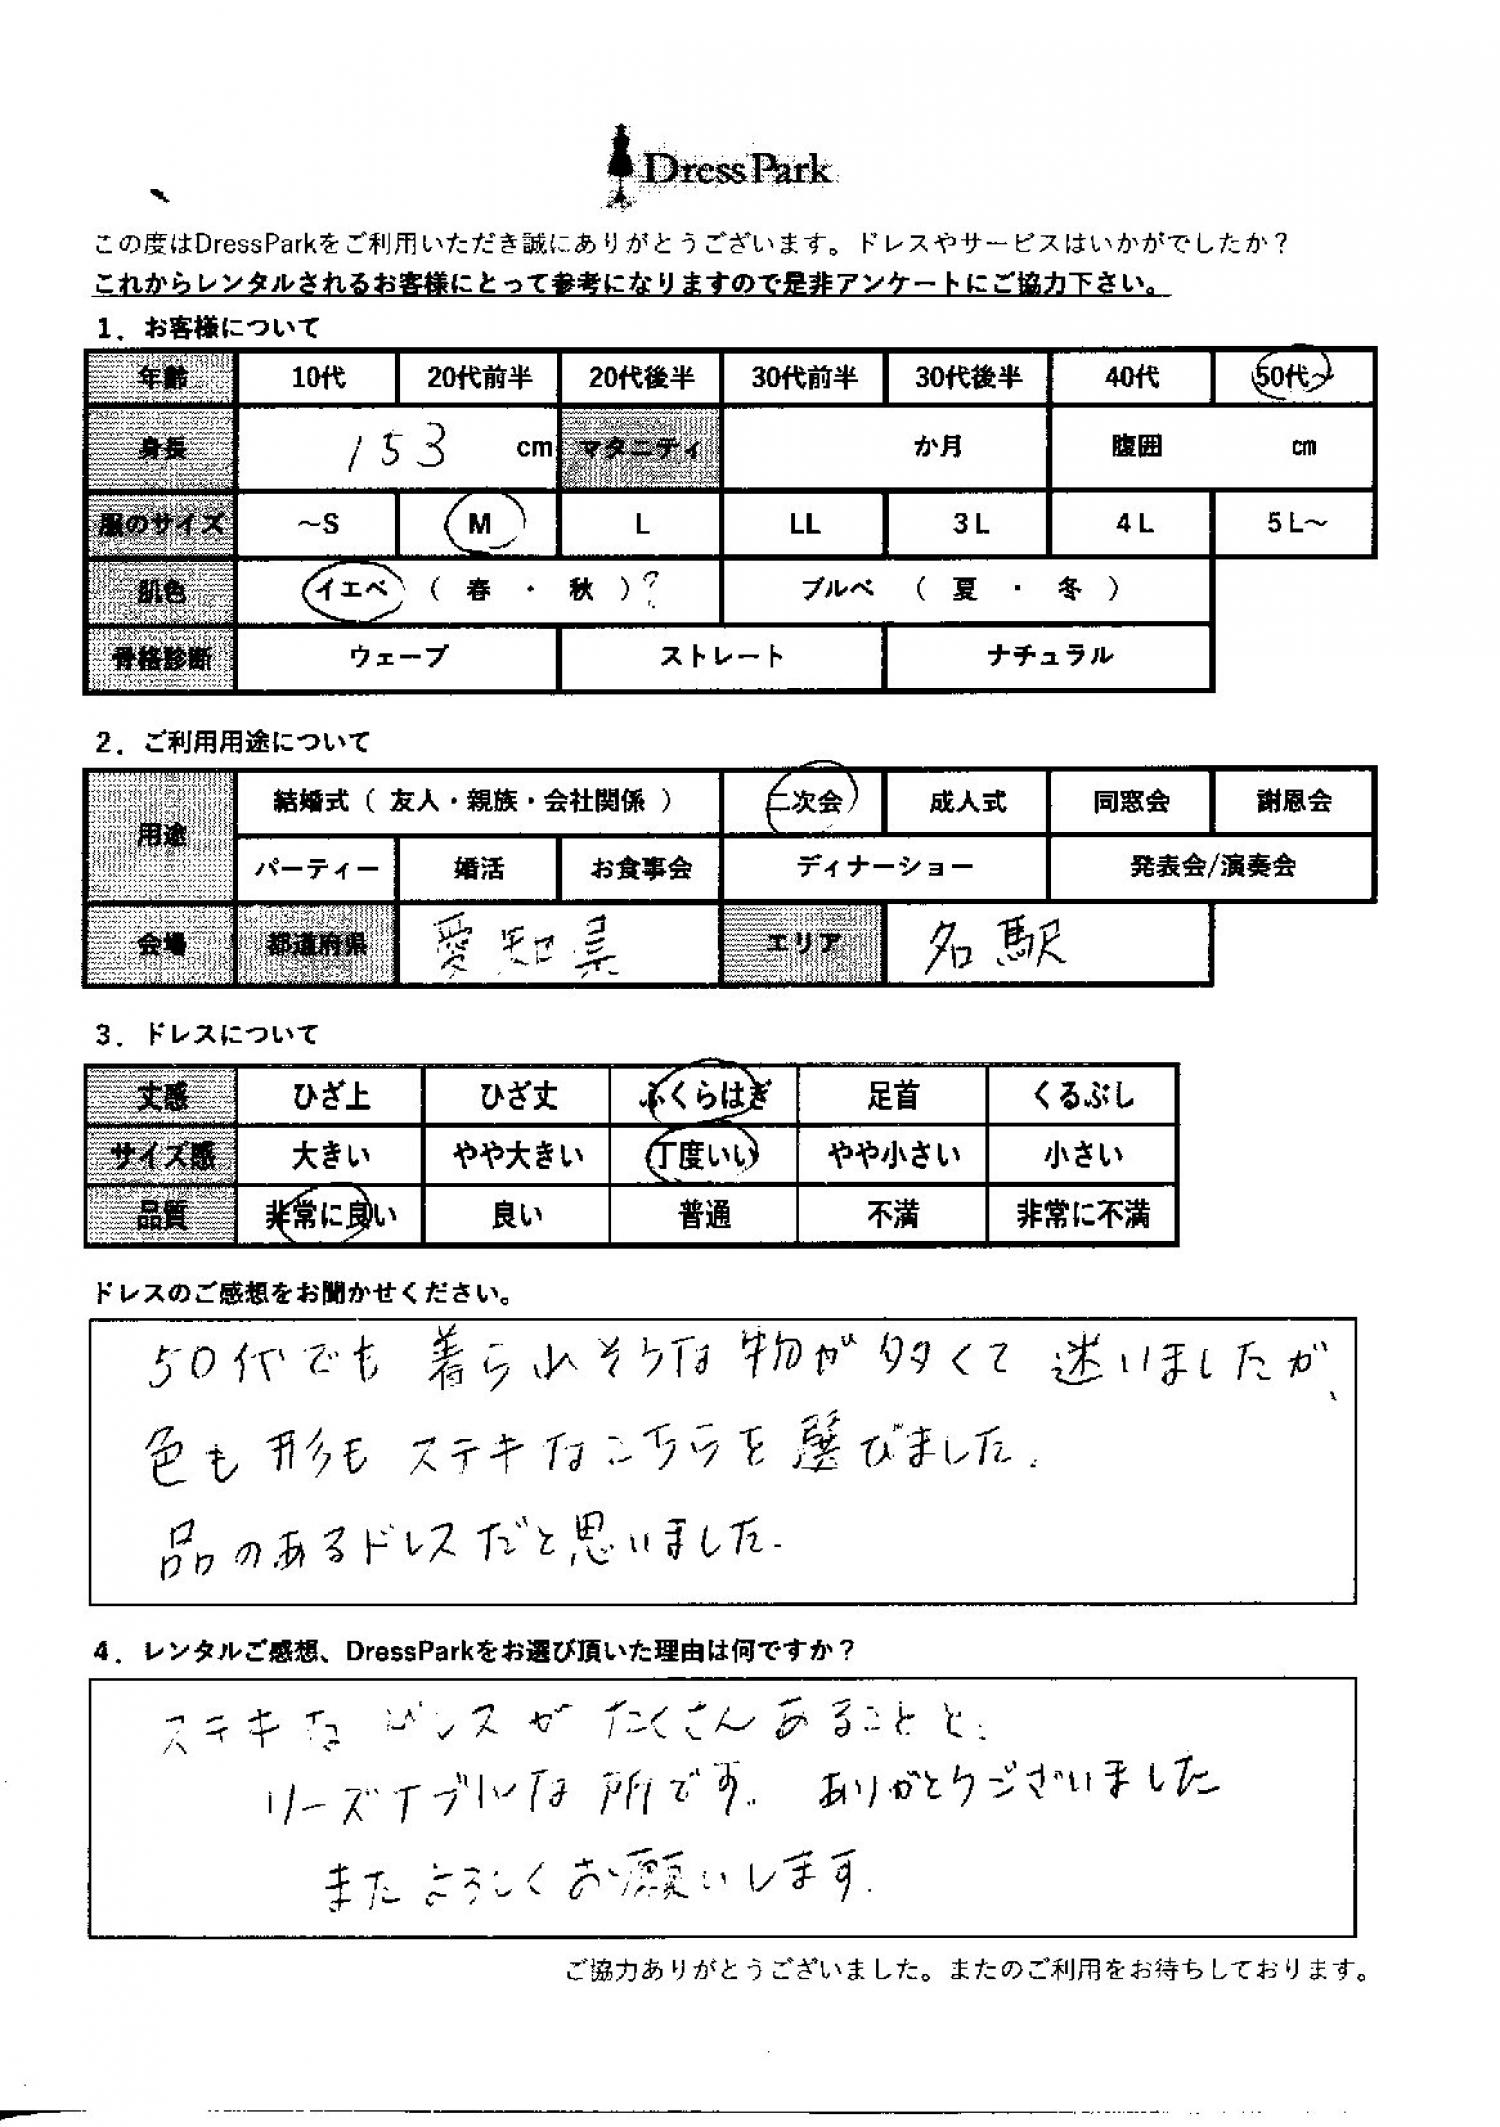 DressPark
この度はDressParkをご利用いただき誠にありがとうございます。ドレスやサービスはいかがでしたか？
これからレンタルされるお客様にとって参考になりますので是非アンケートにご協力下さい。
1．お客様について
年齢 10代 20代前半 20代後半 30代前半 30代後半 40代 50代～
身長 153 cm マタニティ か月 腹囲 cm
服のサイズ ～S M L LL 3L 4L 5L～
肌色 イエベ （ 春 ・ 秋 ）? ブルベ （ 夏 ・ 冬 ）
骨格診断 ウェーブ ストレート ナチュラル
2．ご利用用途について
用途 結婚式（ 友人・親族・会社関係 ） 二次会 成人式 同窓会 謝恩会
パーティー 婚活 お食事会 ディナーショー 発表会/演奏会
会場 都道府県 愛知県 エリア 名駅
3．ドレスについて
丈感 ひざ上 ひざ丈 ふくらはぎ 足首 くるぶし
サイズ感 大きい やや大きい 丁度いい やや小さい 小さい
品質 非常に良い 良い 普通 不満 非常に不満
ドレスのご感想をお聞かせください。
50代でも着られそうな物が多くて迷いましたが、
色も形もステキなこちらを選びました.
品のあるドレスだと思いました.
4．レンタルご感想、DressParkをお選び頂いた理由は何ですか？
ステキなドレスがたくさんあることと、
リーズナブルな所です。 ありがとうございました
またよろしくお願いします.
ご協力ありがとうございました。またのご利用をお待ちしております。